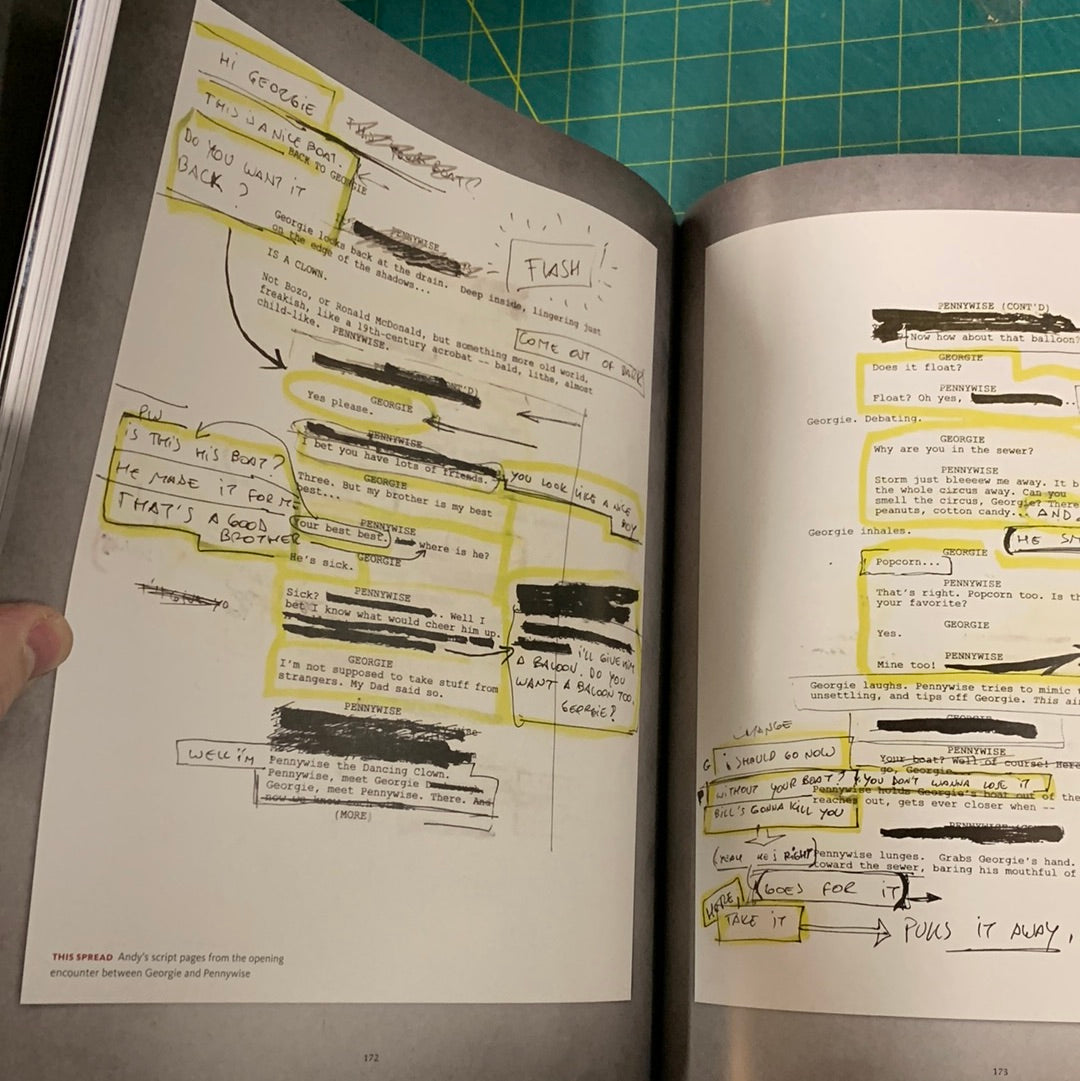 HI GEORGIE
THIS IS A NICE BOAT.
DO YOU WANT IT
BACK?
BACK TO GEORGIE
PENNYWISE
Georgie looks back at the drain. Deep inside, lingering just
on the edge of the shadows...
FLASH!
IS A CLOWN.
Not Bozo, or Ronald McDonald, but something more old world,
freakish, like a 19th-century acrobat -- bald, lithe, almost
child-like. PENNYWISE.
COME OUT OF
GEORGIE
Yes please.
PENNYWISE
I bet you have lots of friends.
YOU LOOK LIKE A NICE
BOY
GEORGIE
Three. But my brother is my best
best...
PW
IS THIS HIS BOAT?
HE MADE IT FOR ME
THAT'S A GOOD
BROTHER
PENNYWISE
Your best best. And where is he?
GEORGIE
He's sick.
PENNYWISE
Sick? Well I
bet I know what would cheer him up.
I'LL GIVE HIM
A BALOON. DO YOU
WANT A BALOON TOO,
GEORGIE?
GEORGIE
I'm not supposed to take stuff from
strangers. My Dad said so.
PENNYWISE
WELL I'M
Pennywise the Dancing Clown.
Pennywise, meet Georgie
Georgie, meet Pennywise. There. And
now we know each
(MORE)
THIS SPREAD Andy's script pages from the opening
encounter between Georgie and Pennywise
172
PENNYWISE (CONT'D)
Now how about that balloon?
GEORGIE
Does it float?
PENNYWISE
Float? Oh yes,
Georgie. Debating.
GEORGIE
Why are you in the sewer?
PENNYWISE
Storm just bleeeew me away. It b
the whole circus away. Can you
smell the circus, Georgie? There
peanuts, cotton candy... AND
Georgie inhales.
HE SM
GEORGIE
Popcorn...
PENNYWISE
That's right. Popcorn too. Is th
your favorite?
GEORGIE
Yes.
PENNYWISE
Mine too!
Georgie laughs. Pennywise tries to mimic
unsettling, and tips off Georgie. This ai
CHANGE
GEORGIE
G I SHOULD GO NOW
PENNYWISE
Your boat? Well of course! Here
go, Georgie.
P WITHOUT YOUR BOAT? YOU DON'T WANNA LOSE IT
BILL'S GONNA KILL YOU
Pennywise holds Georgie's boat out of the
reaches out, gets ever closer when --
(YEAH HE'S RIGHT)
Pennywise lunges. Grabs Georgie's hand.
toward the sewer, baring his mouthful of
GOES FOR IT
HERE,
TAKE IT
PULLS IT AWAY,
173